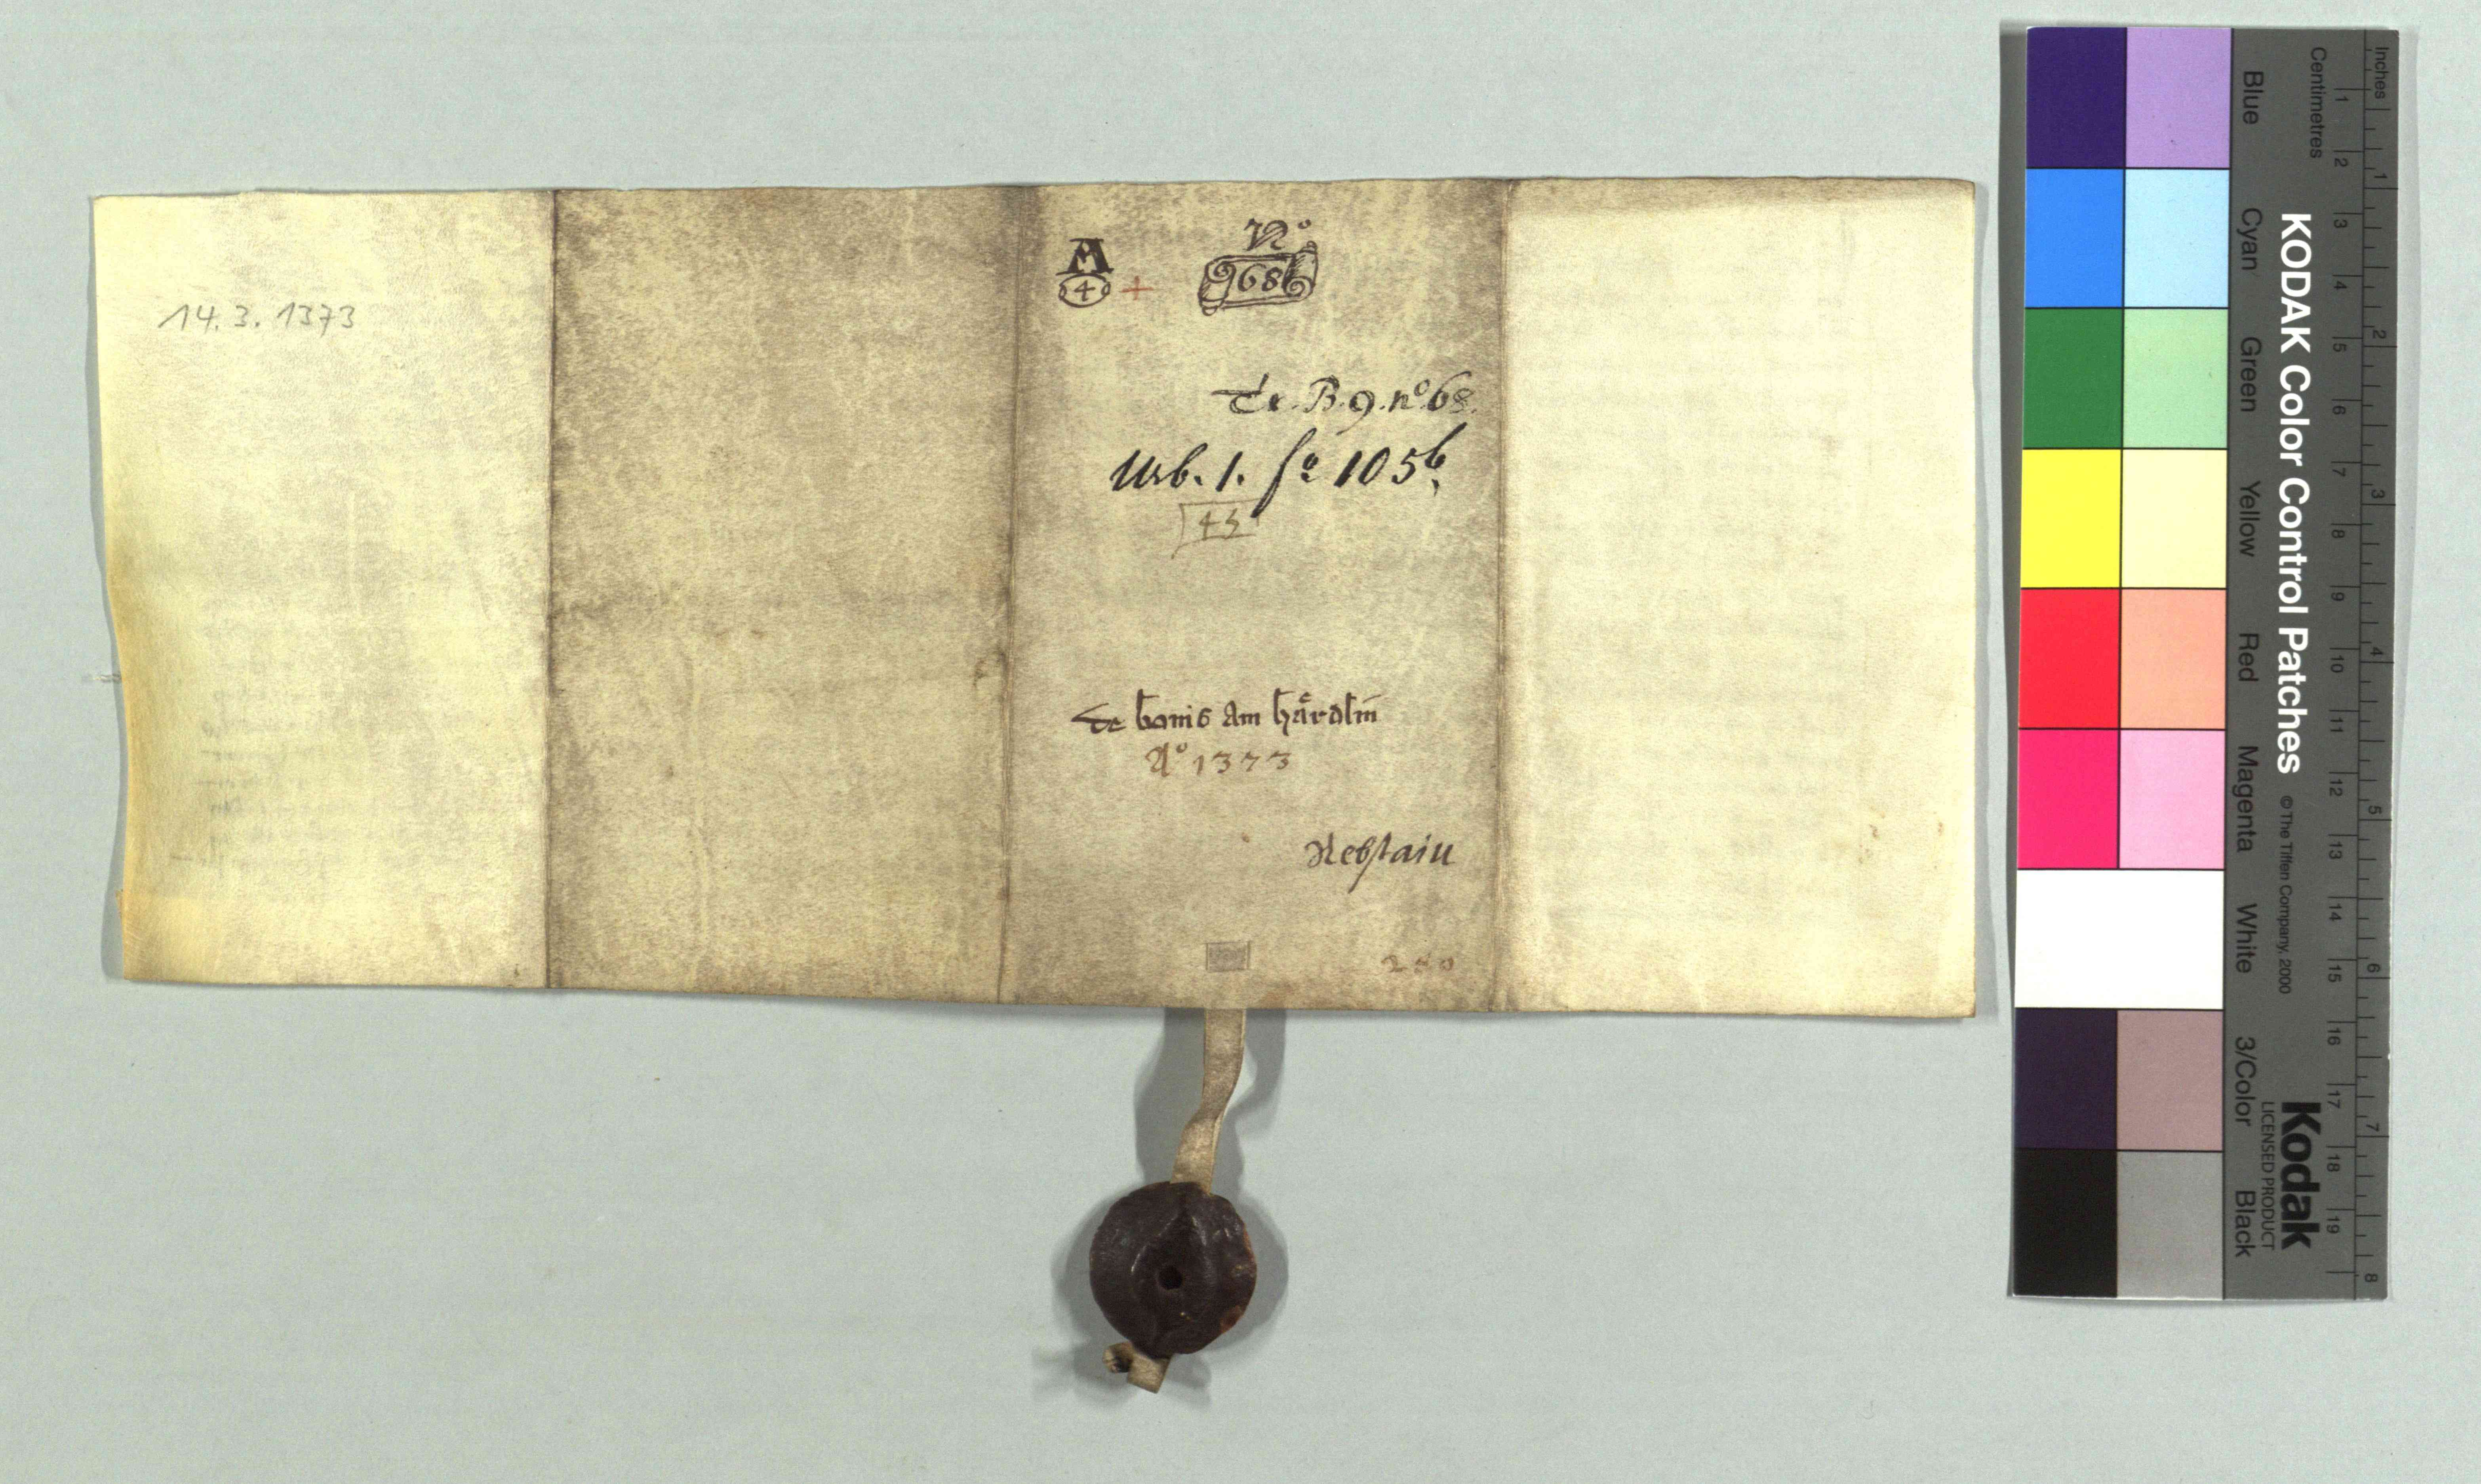 14. 3. 1373
A
4 +
No
68
Te. B. 9. no 68.
Urb. 1. fo 105b.
45
de bonis am härdlin
Ao 1373
Rebstain
280
KODAK Color Control Patches
© The Tiffen Company, 2000
Kodak
LICENSED PRODUCT
Blue Cyan Green Yellow Red Magenta White 3/Color Black
Inches 1 2 3 4 5 6 7 8
Centimetres 1 2 3 4 5 6 7 8 9 10 11 12 13 14 15 16 17 18 19